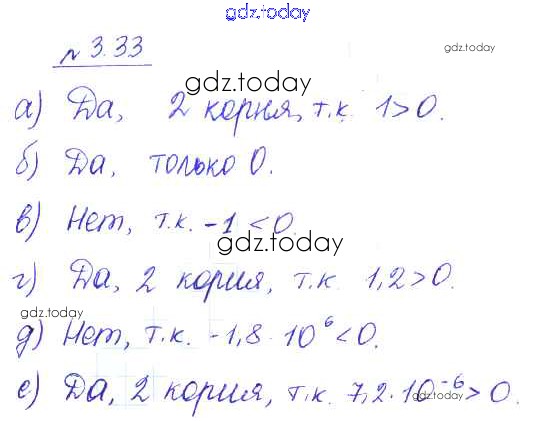 gdz.today
№ 3.33
gdz.today
gdz.today
а) Да, 2 корня, т.к. 1>0.
б) Да, только 0.
в) Нет, т.к. -1<0.
gdz.today
г) Да, 2 корня, т.к. 1,2>0.
gdz.today
д) Нет, т.к. -1,8·10⁶<0.
е) Да, 2 корня, т.к. 7,2·10⁻⁶>0.